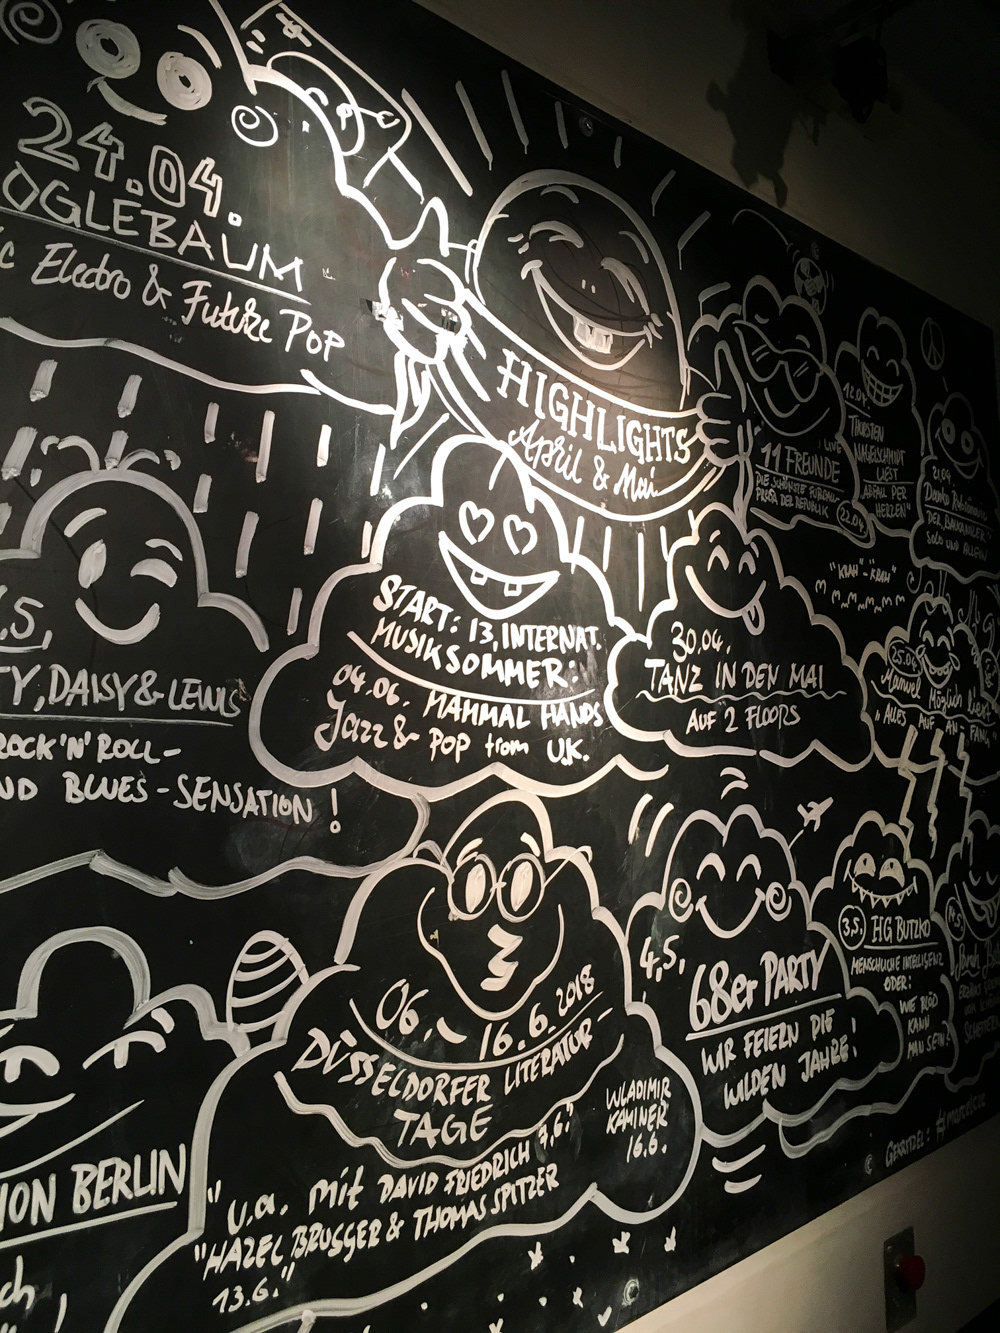 24.04.
OGLEBAUM
Electro & Future Pop
HIGHLIGHTS
April & Mai
LIVE
11 FREUNDE
22.04.
12.04.
THORSTEN
NAGELSCHMIDT
LIEST
"ABFALL PER
HERZEN"
21.04.
SOLO UND ALLEIN
5,
TY, DAISY & LEWIS
ROCK'N'ROLL-
ND BLUES-SENSATION!
START: 13. INTERNAT.
MUSIKSOMMER:
04.06. MAHMAL HANDS
Jazz & POP from U.K.
30.04.
TANZ IN DEN MAI
AUF 2 FLOORS
"KLAH"-"KRAH"
25.04.
Manuel Möglich liest
"ALLES AUF AN-FANG"
06. - 16.6.2018
DÜSSELDORFER LITERATUR-
TAGE
"u.a. mit DAVID FRIEDRICH 7.6."
"HAZEL BRUGGER & THOMAS SPITZER
13.6."
WLADIMIR
KAMINER
16.6.
4.5.
68er PARTY
WIR FEIERN DIE
WILDEN JAHRE!
3.5. HG BUTZKO
MENSCHLICHE INTELLIGENZ
ODER:
WIE BLÖD
KANN
MAN SEIN?
ION BERLIN
ch